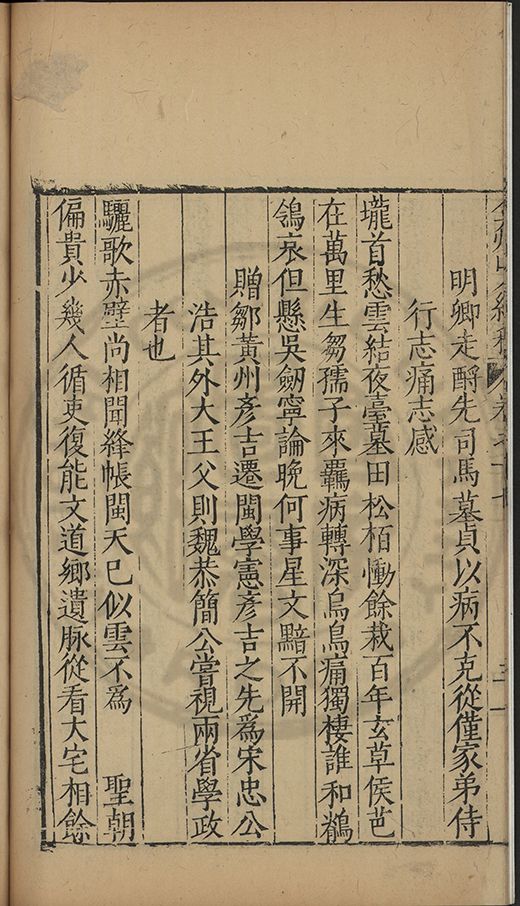 明卿走酹先司馬墓貞以病不克從僅家弟侍
行志痛志感
壠首愁雲結夜臺墓田松栢慟餘栽百年玄草侯芭
在萬里生芻孺子來羸病轉深烏鳥痛獨棲誰和鶺
鴒哀但懸吳劒寧論晚何事星文黯不開
贈鄒黃州彥吉遷閩學憲彥吉之先爲宋忠公
浩其外大王父則魏恭簡公嘗視兩省學政
者也
驪歌赤壁尚相聞絳帳閩天已似雲不爲 聖朝
偏貴少幾人循吏復能文道鄉遺脉從看大宅相餘